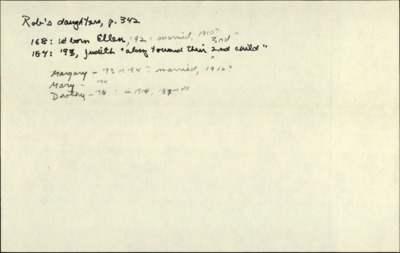 Rob's daughters, p. 342
168: 1st born Ellen, '92: married, 1910
184: '93, Judith "along toward their 2nd child"
3rd
Margery - '93 or '94? married, 1912?
Mary - '94
Dorothy - '96: in 1914,